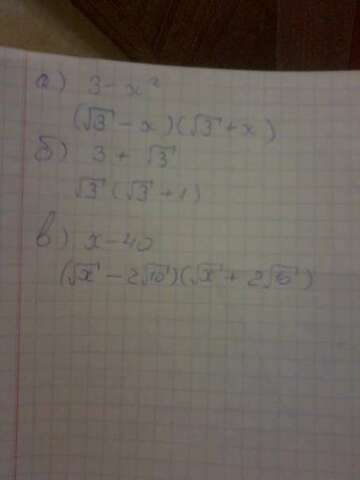 а) 3 - x²
(√3 - x)(√3 + x)
б) 3 + √3
√3 (√3 + 1)
в) x - 40
(√x - 2√10)(√x + 2√10)